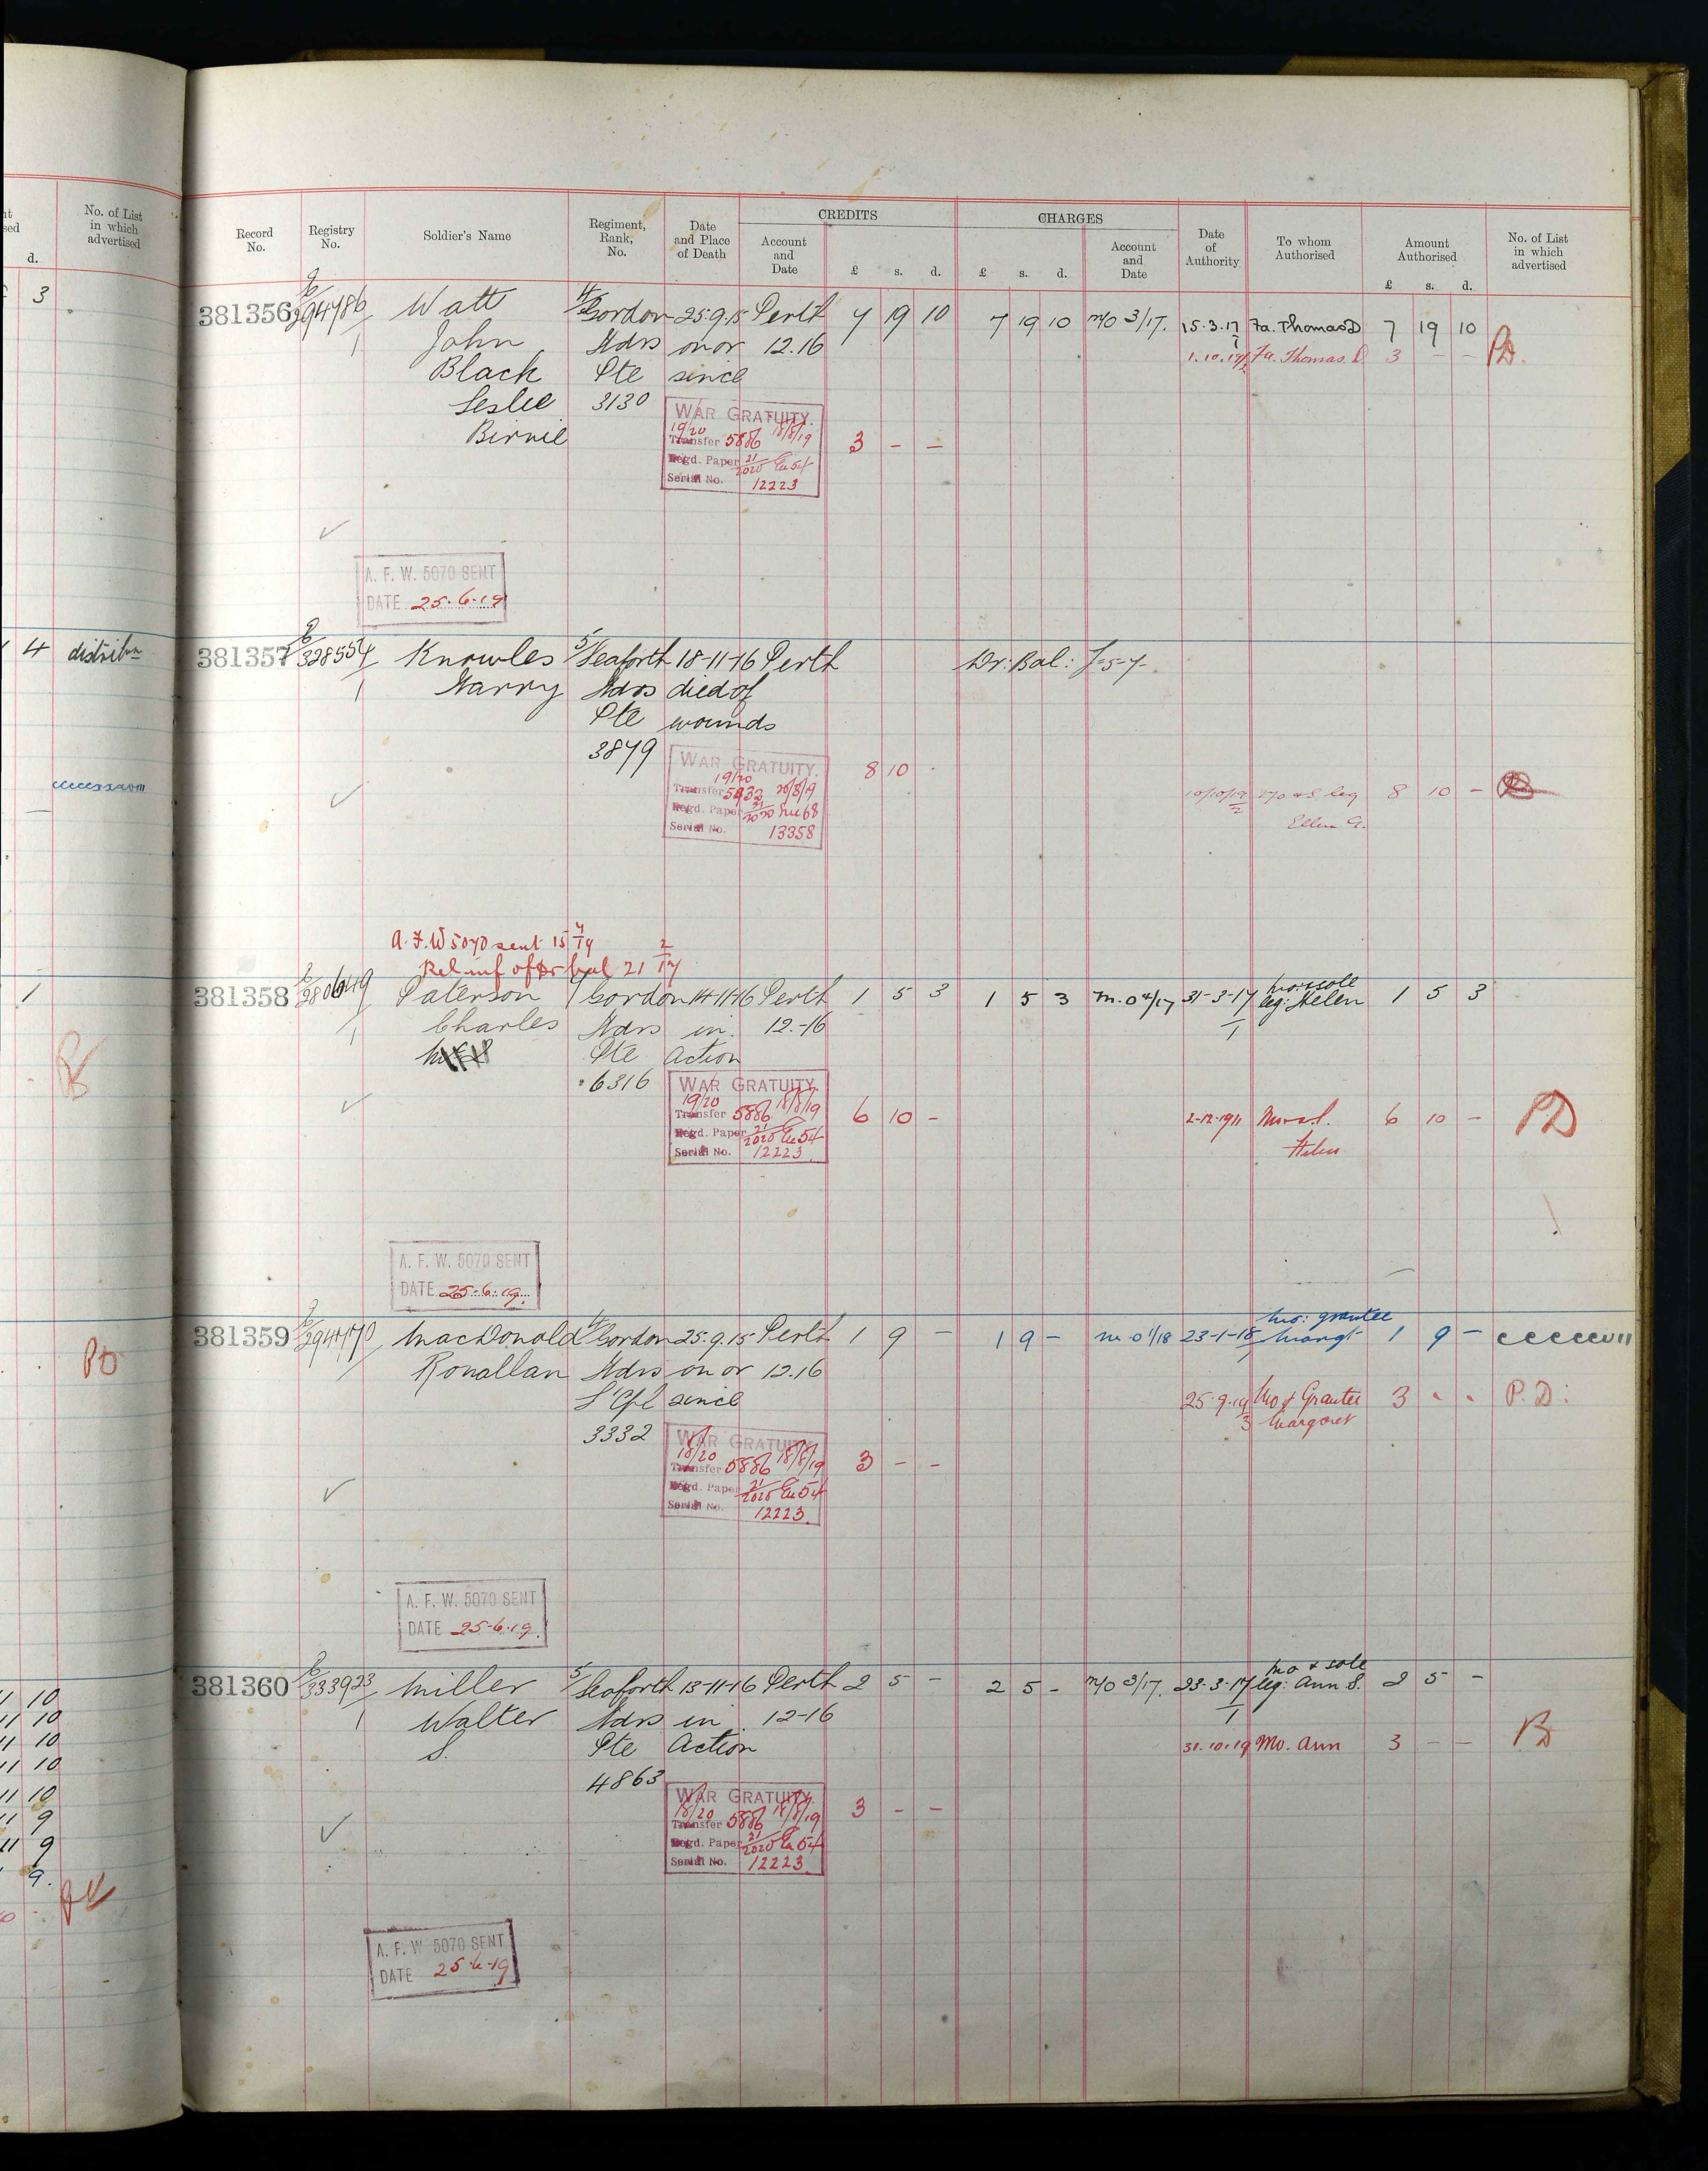 No. of List
in which
advertised
d.
3
4 distribn
ccccssxxviii
1
PD
11 10
11 10
11 10
11 10
11 10
11 9
11 9
9.
CREDITS
CHARGES
Record
No.
Registry
No.
Soldier's Name
Regiment,
Rank,
No.
Date
and Place
of Death
Account
and
Date
£ s. d.
£ s. d.
Account
and
Date
Date
of
Authority
To whom
Authorised
Amount
Authorised
£ s. d.
No. of List
in which
advertised
381356 294786/1 Watt 4/Gordon 25.9.15 Perth 7 19 10 7 19 10 M/O 3/17. 15.3.17 Fa. Thomas D 7 19 10
John Hdrs on or 12.16 1.10.19 Fa. Thomas. D. 3 - - PD.
Black Pte since
Leslie 3130
Birnie
WAR GRATUITY.
19/20
Transfer 5886 18/8/19
Regd. Paper 21/2020 Eu 54
Serial No. 12223
3 - -
A. F. W. 5070 SENT
DATE 25.6.19
381357 328554/1 Knowles 5/Seaforth 18-11-16 Perth Dr: Bal: 7-5-7-
Harry Hdrs died of
Pte wounds
3879
WAR GRATUITY.
19/20
Transfer 5932 20/8/19
Regd. Paper 21/2020 Eu 68
Serial No. 13358
8 10 -
10/10/19 Mo & S. leg 8 10 -
Ellen A.
A.F.W 5070 sent 15
Rel inf of Dr bal 21 2/17
381358 280649/1 Paterson Gordon 14-11-16 Perth 1 5 3 1 5 3 M.O 4/17 31-3-17 mo: & sole leg: Helen 1 5 3
Charles Hdrs in 12.-16
Pte Action
6316
WAR GRATUITY.
19/20
Transfer 5886 18/8/19
Regd. Paper 21/2020 Eu 54
Serial No. 12223
6 10 -
2-12-19 Mo & s.l. 6 10 - PD
Helen
A. F. W. 5070 SENT
DATE 25.6.19.
381359 MacDonald 4/Gordon 25.9.15 Perth 1 9 - 1 9 - M.O 1/18 23-1-18 Mo: grantee Margt 1 9 - cccccvii
Ronallan Hdrs on or 12.16
L'Cpl since
3332
25.9.19 Mo & Grantee 3 - - P.D:
Margaret
WAR GRATUITY.
18/20
Transfer 5886 18/8/19
Regd. Paper 21/2020 Eu 54
Serial No. 12223
3 - -
A. F. W. 5070 SENT
DATE 25-6-19.
381360 333923/1 Miller 5/Seaforth 13-11-16 Perth 2 5 - 2 5 - M/O 3/17. 23-3-17 mo & sole leg: Ann S. 2 5 -
Walter Hdrs in 12-16
S. Pte Action 31.10.19 Mo. Ann 3 - - PD
4863
WAR GRATUITY.
18/20
Transfer 5886 18/8/19
Regd. Paper 21/2020 Eu 54
Serial No. 12223
3 - -
A. F. W 5070 SENT
DATE 25-6-19